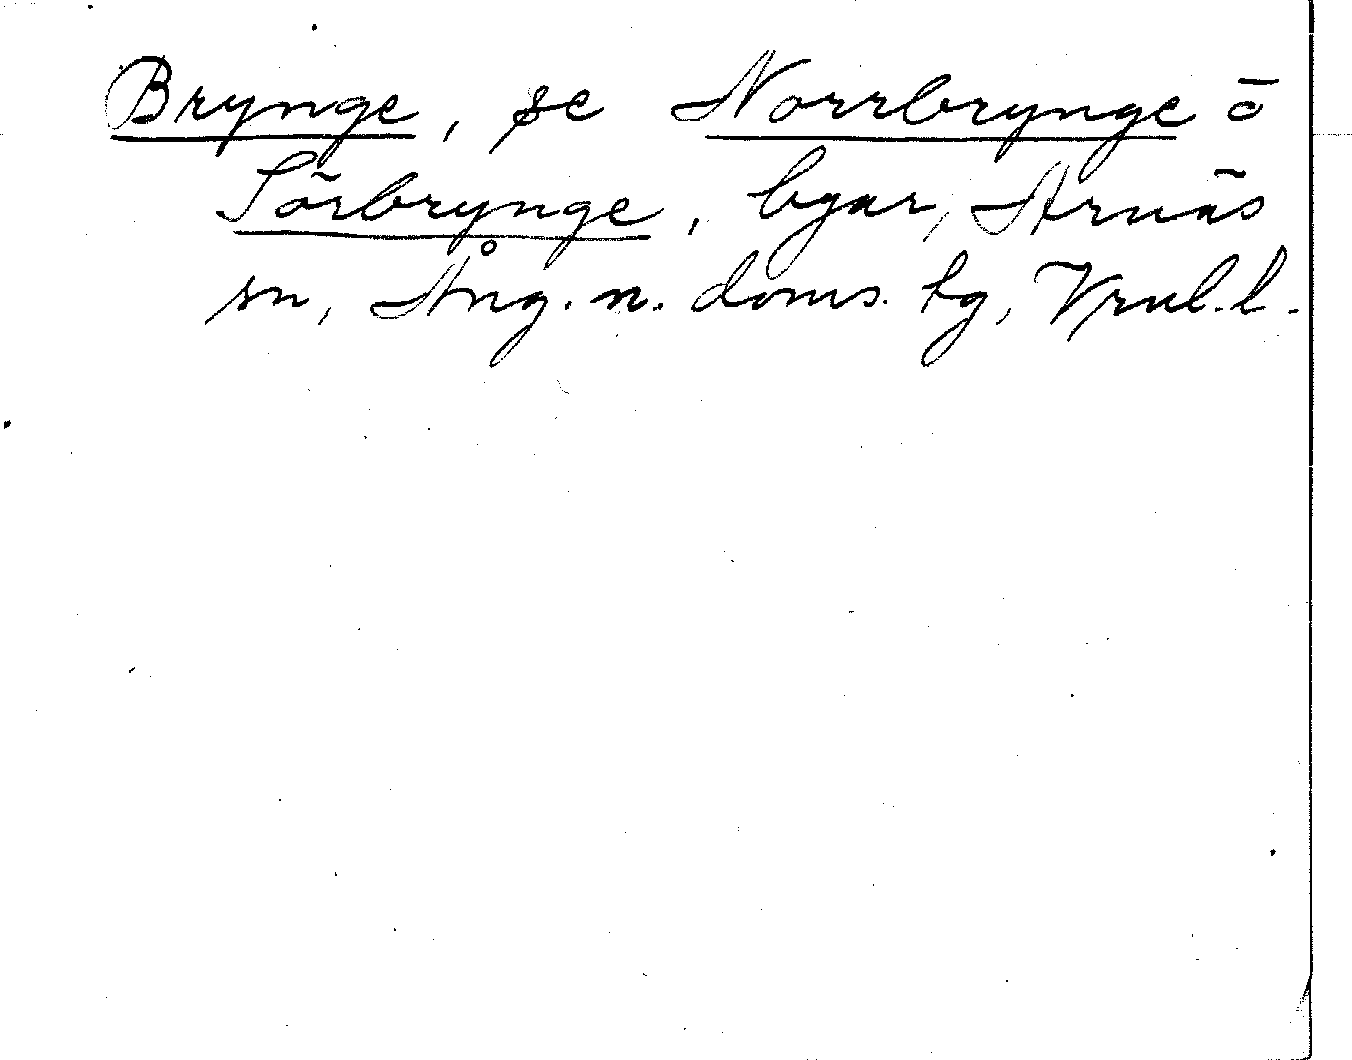 Brynge, se Norrbrynge o
Sörbrynge, byar, Arnäs
sn, Ång. n. doms. tg, Vrnl. l.